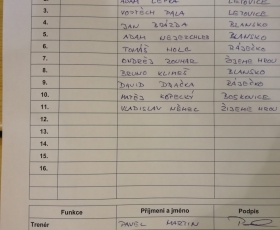 2. ADAM LEPKA LETOVICE
3. VOJTĚCH PALA LETOVICE
4. JAN BRÁZDA BLANSKO
5. ADAM NEJEZCHLEB BLANSKO
6. TOMÁŠ HOLB RÁJEČKO
7. ONDŘEJ ZOUHAR ŽIJEME HROU
8. BRUNO KLIMEŠ BLANSKO
9. DAVID DRAČKA RÁJEČKO
10. MATĚJ KOPECKÝ BOSKOVICE
11. VLADISLAV NĚMEC ŽIJEME HROU
12.
13.
14.
15.
16.
Funkce Příjmení a jméno Podpis
Trenér PAVEL MARTIN